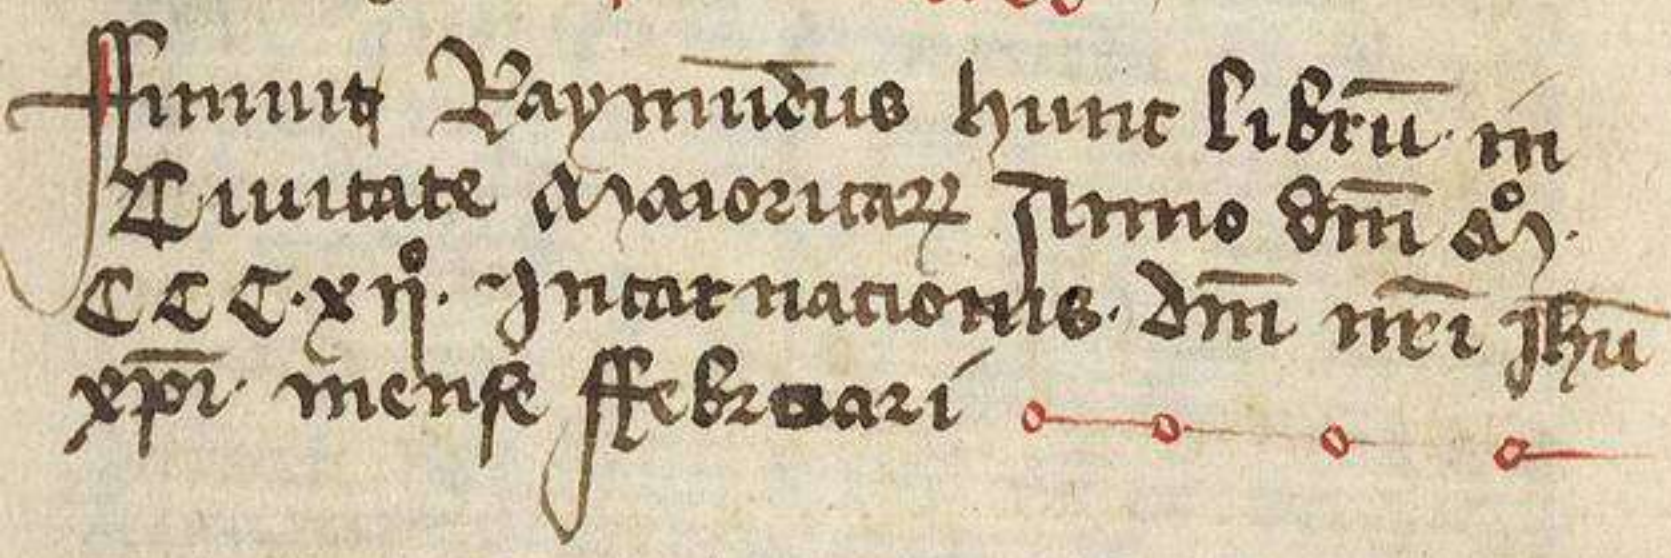 ffiniuit Raymu̅dus hunc libru̅. in
Ciuitate Maioricaꝝ Anno dn̅i Mº.
CCC.xijº. Incarnacionis. dn̅i nr̅i Jhu̅
xp̅i. mense ffebruari